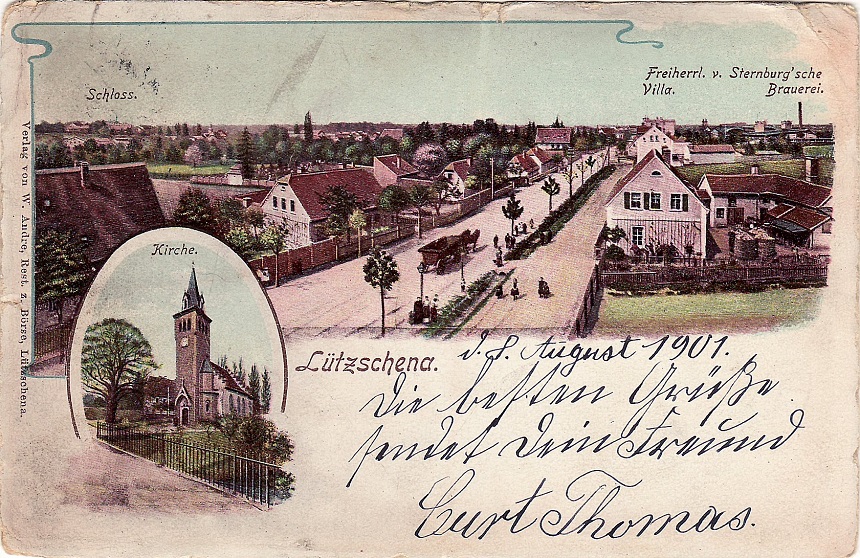 Schloss.
Freiherrl. v. Sternburg'sche
Villa. Brauerei.
Verlag von W. Andre, Rest. z. Börse, Lützschena.
Kirche.
Lützschena.
d. 8. August 1901.
Die besten Grüße
sendet Dein Freund
Curt Thomas.